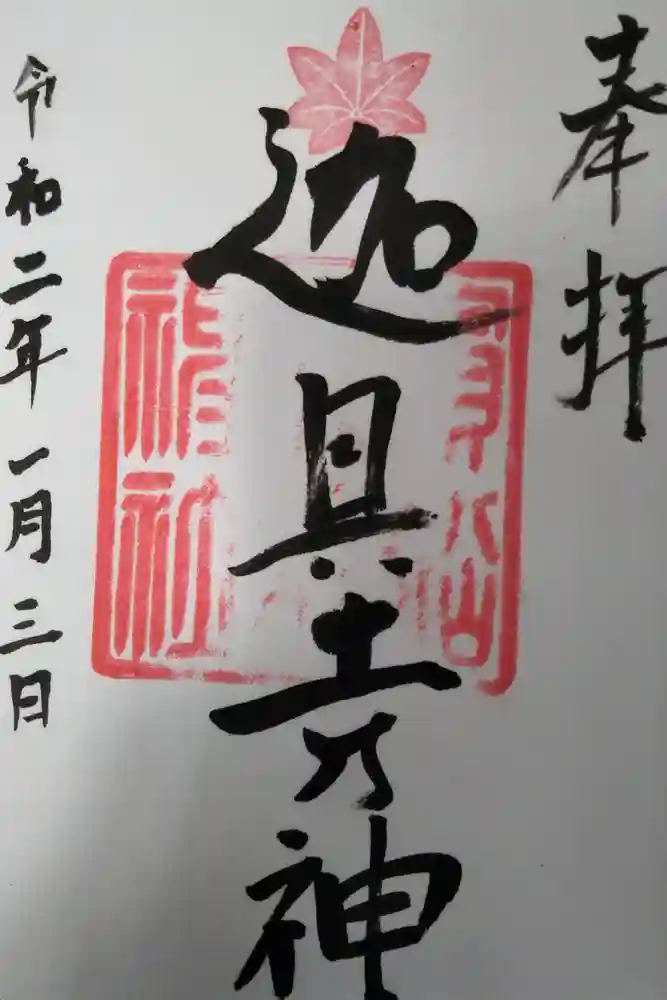 奉拝
迦具土乃神
令和二年一月三日
神社